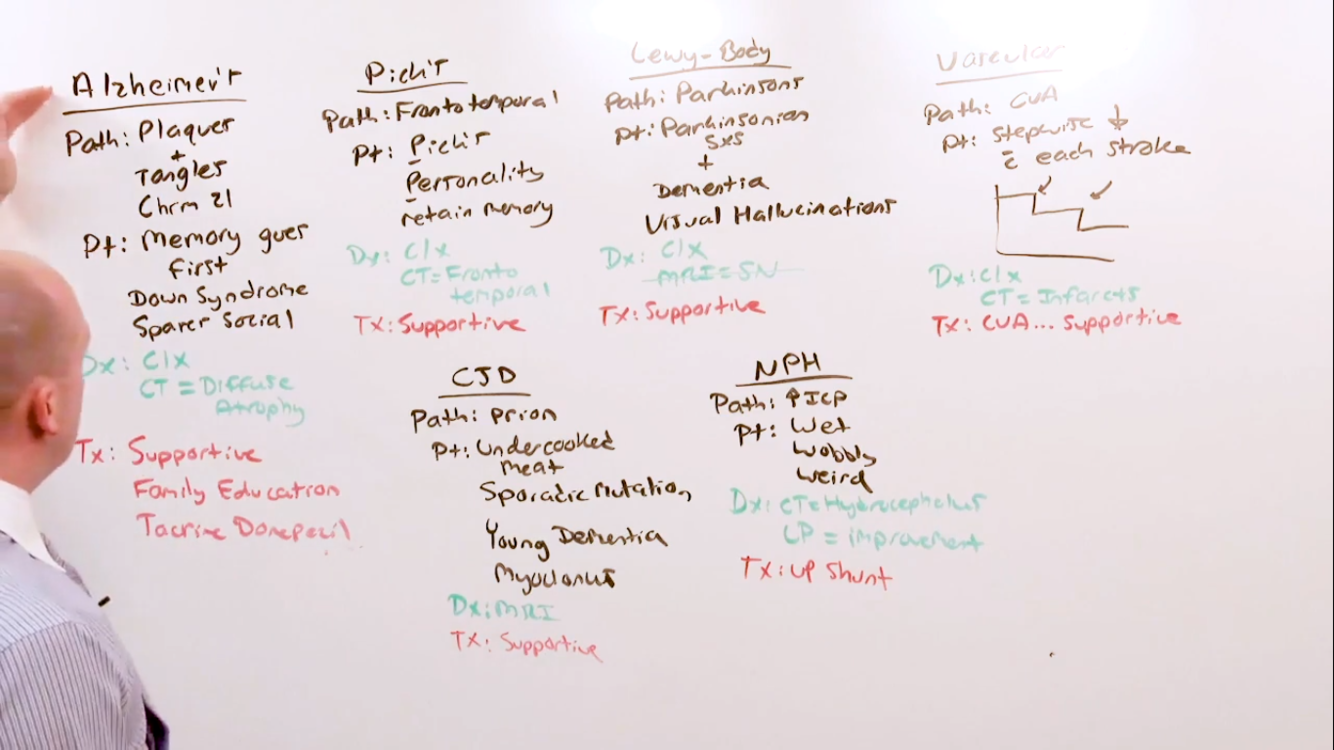 Alzheimer's
Path: Plaques
+
Tangles
Chrm 21
Pt: Memory goes
first
Down Syndrome
Spares Social
Dx: C/x
CT = Diffuse
Atrophy
Tx: Supportive
Family Education
Tacrine Donepezil
Pick's
Path: Frontotemporal
Pt: Pick's
Personality
retain memory
Dx: C/x
CT = Fronto
temporal
Tx: Supportive
Lewy-Body
Path: Parkinsons
Pt: Parkinsonian
Sxs
+
Dementia
Visual Hallucinations
Dx: C/x
MRI = SN
Tx: Supportive
Vascular
Path: CVA
Pt: Stepwise ↓
c̄ each stroke
Dx: C/x
CT = Infarcts
Tx: CVA... Supportive
CJD
Path: prion
Pt: Undercooked
meat
Sporadic Mutation
Young Dementia
Myoclonus
Dx: MRI
Tx: Supportive
NPH
Path: ↑ICP
Pt: Wet
Wobbly
Weird
Dx: CT = Hydrocephalus
LP = improvement
Tx: VP Shunt